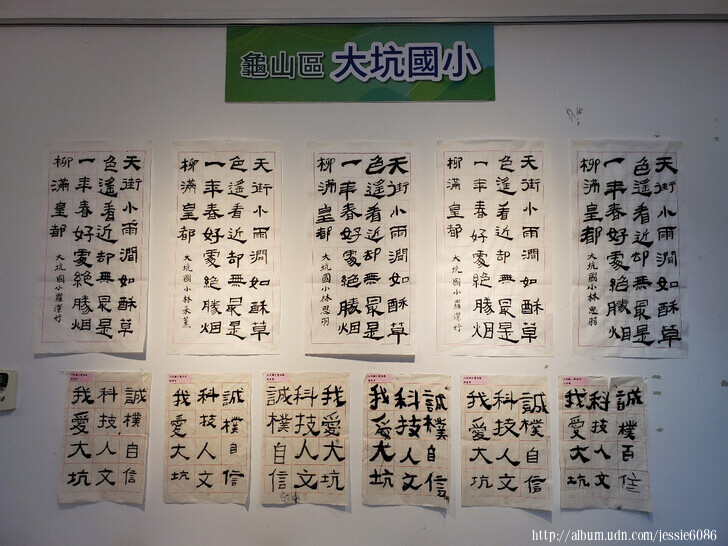 龜山區 大坑國小
天街小雨潤如酥草
色遙看近却無最是
一年春好處絕勝烟
柳滿皇都
大坑國小羅妤
天街小雨潤如酥草
色遙看近却無最是
一年春好處絕勝烟
柳滿皇都
大坑國小林采
天街小雨潤如酥草
色遙看近却無最是
一年春好處絕勝烟
柳滿皇都
大坑國小林思羽
天街小雨潤如酥草
色遙看近却無最是
一年春好處絕勝烟
柳滿皇都
大坑國小羅妤
天街小雨潤如酥草
色遙看近却無最是
一年春好處絕勝烟
柳滿皇都
大坑國小林思羽
誠樸自信
科技人文
我愛大坑
誠樸自信
科技人文
我愛大坑
我愛大坑
科技人文
誠樸自信
誠樸自信
科技人文
我愛大坑
誠樸自信
科技人文
我愛大坑
誠樸百信
科技人文
我愛大坑
http://album.udn.com/jessie6086